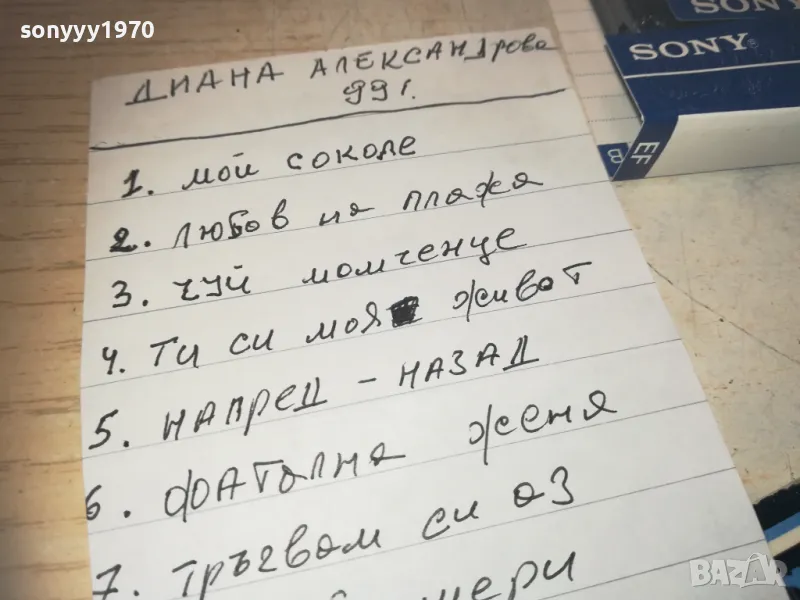 sonyyy1970
SONY
SONY
EF
B
ДИАНА АЛЕКСАНДРОВА
99 г.
1. МОЙ СОКОЛЕ
2. ЛЮБОВ НА ПЛАЖА
3. ЧУЙ МОМЧЕНЦЕ
4. ТИ СИ МОЯ ЖИВОТ
5. НАПРЕД - НАЗАД
6. ФАТАЛНА ЖЕНА
7. ТРЪГВАМ СИ АЗ
BAZAR